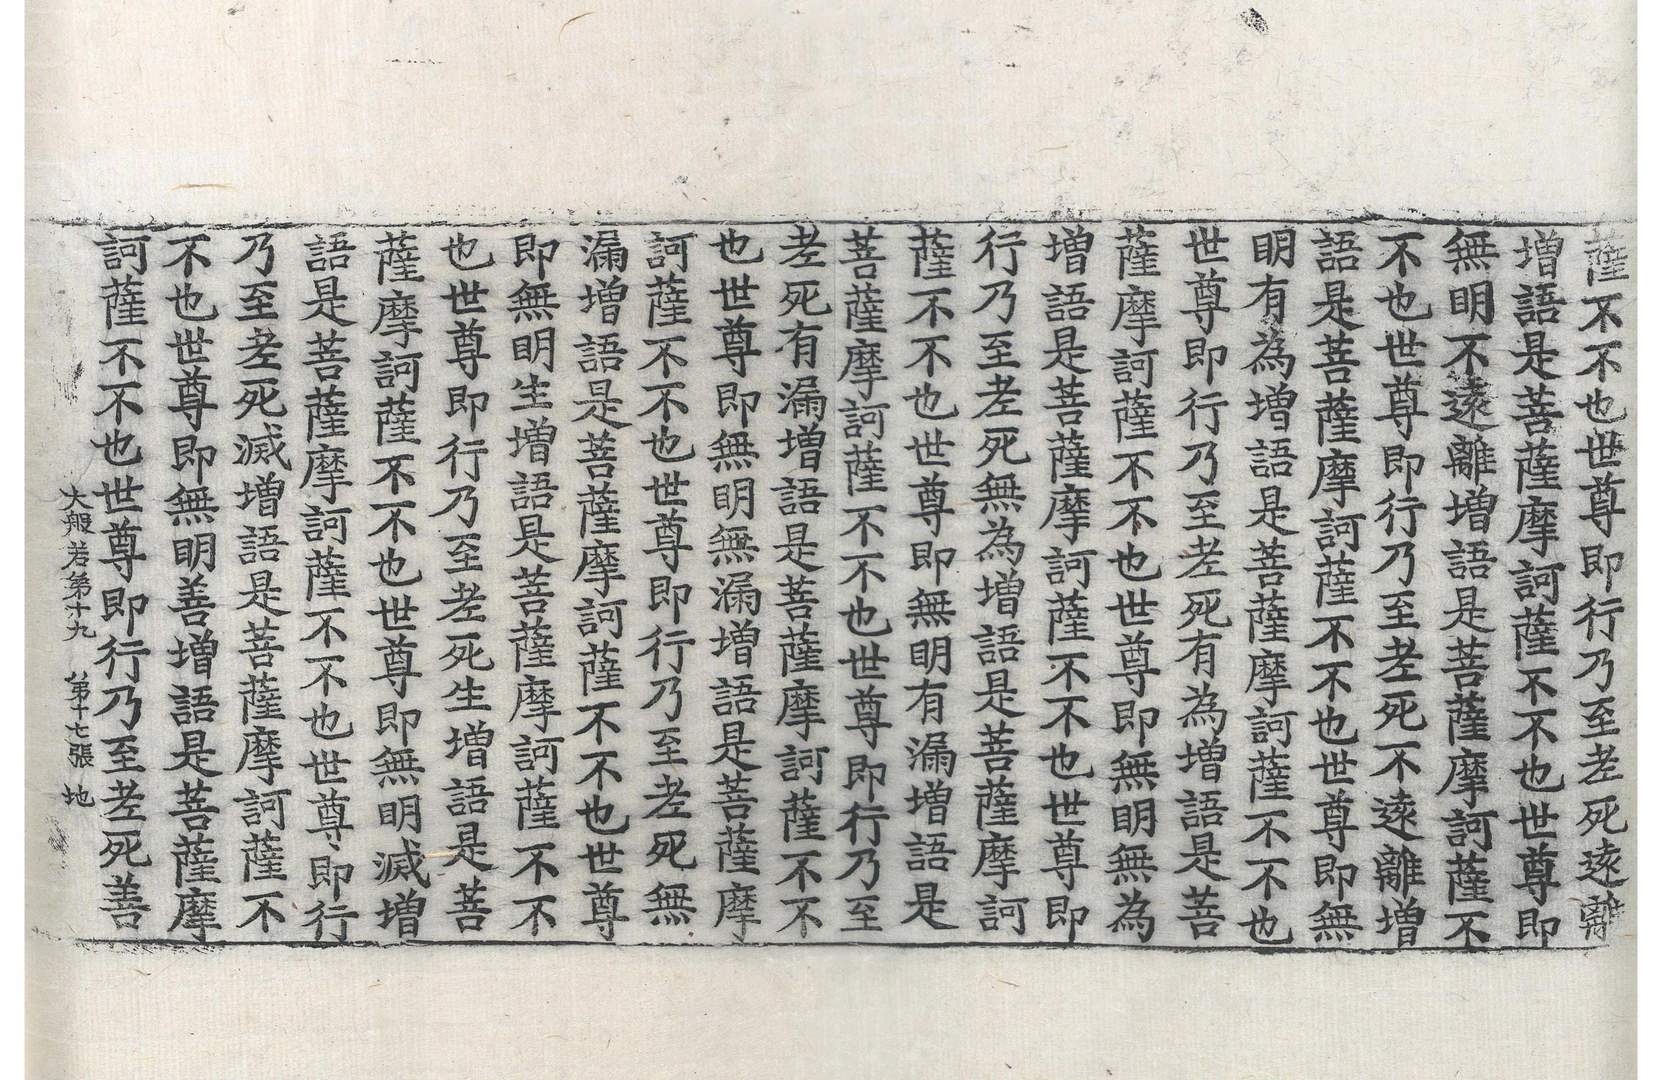 薩不不也世尊即行乃至老死遠離
增語是菩薩摩訶薩不不也世尊即
無明不遠離增語是菩薩摩訶薩不
不也世尊即行乃至老死不遠離增
語是菩薩摩訶薩不不也世尊即無
明有為增語是菩薩摩訶薩不不也
世尊即行乃至老死有為增語是菩
薩摩訶薩不不也世尊即無明無為
增語是菩薩摩訶薩不不也世尊即
行乃至老死無為增語是菩薩摩訶
薩不不也世尊即無明有漏增語是
菩薩摩訶薩不不也世尊即行乃至
老死有漏增語是菩薩摩訶薩不不
也世尊即無明無漏增語是菩薩摩
訶薩不不也世尊即行乃至老死無
漏增語是菩薩摩訶薩不不也世尊
即無明生增語是菩薩摩訶薩不不
也世尊即行乃至老死生增語是菩
薩摩訶薩不不也世尊即無明滅增
語是菩薩摩訶薩不不也世尊即行
乃至老死滅增語是菩薩摩訶薩不
不也世尊即無明善增語是菩薩摩
訶薩不不也世尊即行乃至老死善
大般若第十九 第十七張 地